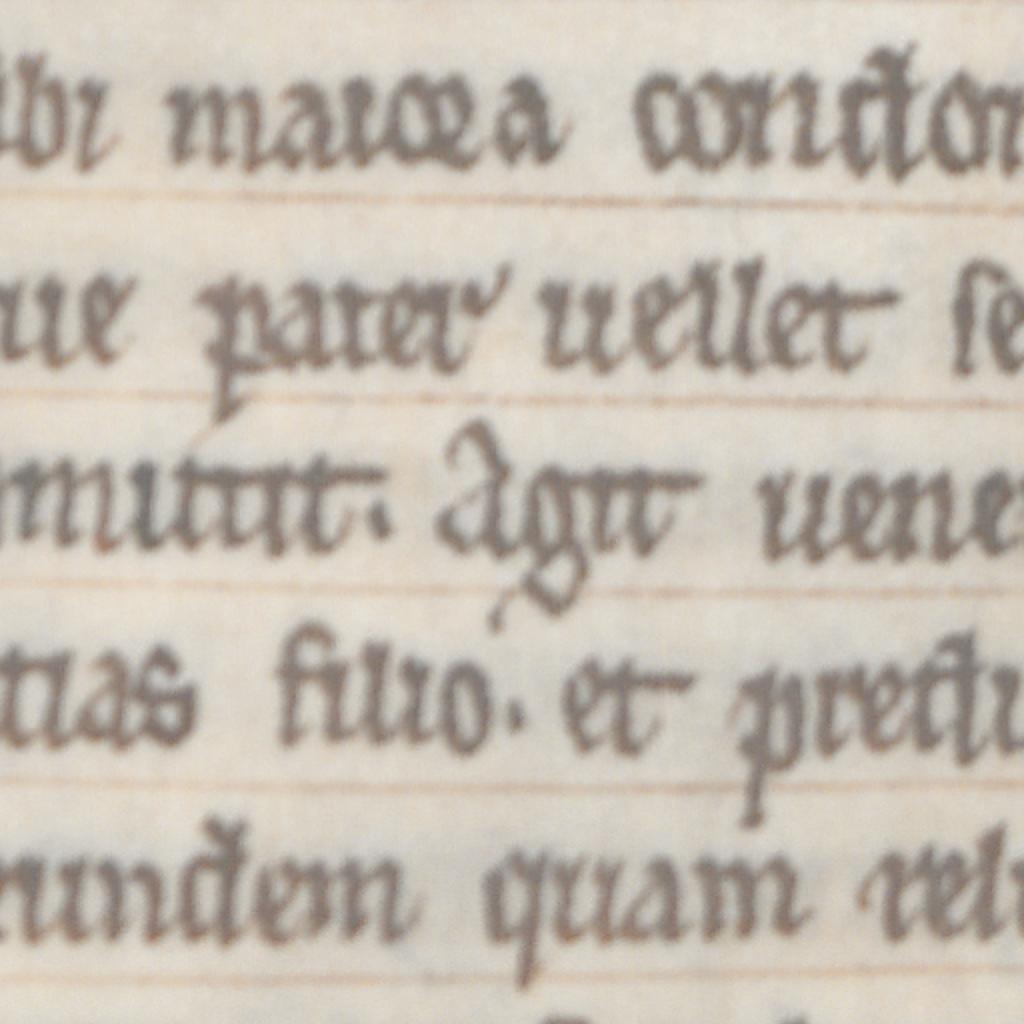 ibi maiora condon
ue pater uellet se
mittit. Agit uene
tias filio. et presti
eundem quam relı